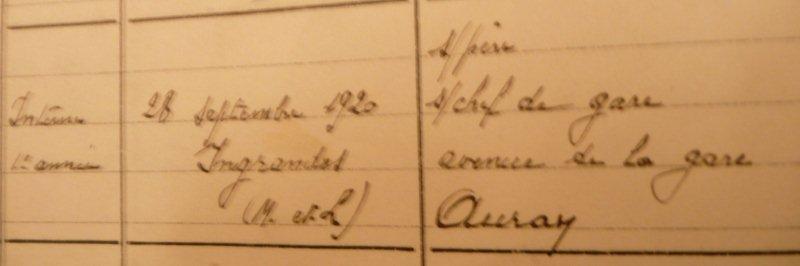 s/père
Interne
28 septembre 1920
s/chef de gare
1re année
Ingrandes
avenue de la gare
(M. et L)
Auray